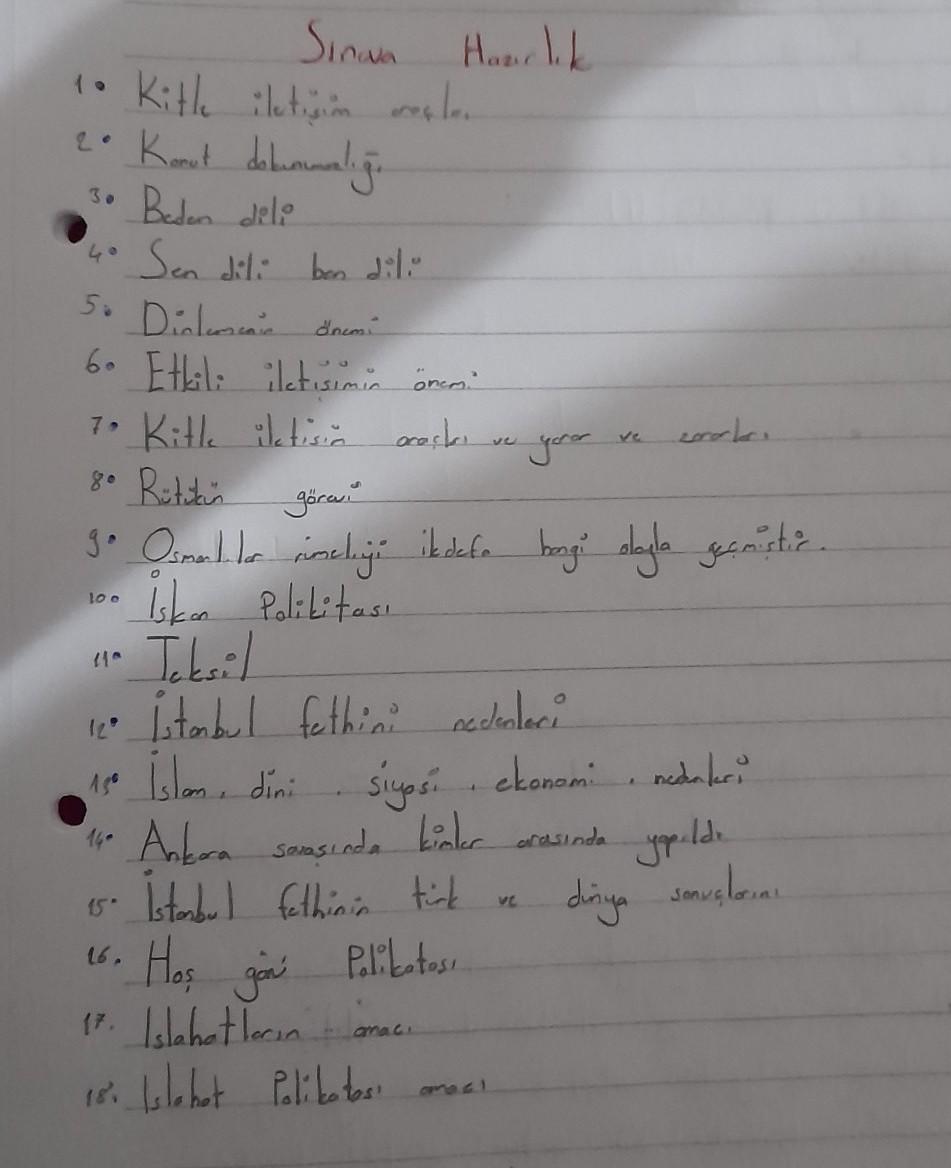 Sınava Hazırlık
1. Kitle iletişim araçları
2. Konut dokunumazlığı
3. Beden dili
4. Sen dili ben dili
5. Dinlemenin önemi
6. Etkili iletişimin önemi
7. Kitle iletisin araçları ve yarar ve zararları
8. Rütükün görevi
9. Osmanlılar rumeliyi ilkdefa hangi olayla geçmiştir.
10. İskan Polikitası
11. Teksil
12. İstanbul fethini nedenleri
13. İslam, dini, siyasi, ekonomi, nedenleri
14. Ankara savasında kimler arasında yapıldı
15. İstanbul fethinin türk ve dünya sonuçlarını
16. Hoş görü Polikatası
17. Islahatların amacı
18. Islahat Polikatası amacı